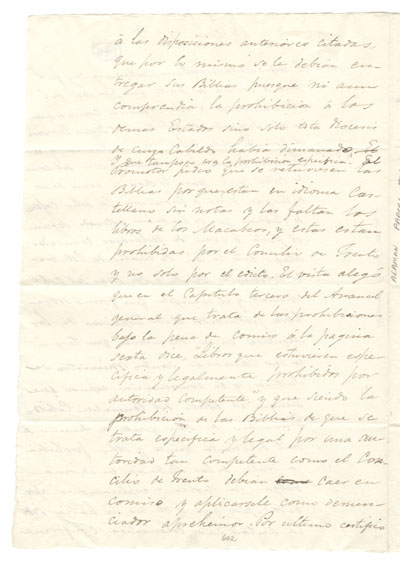 á las disposiciones anteriores citadas,
que por lo mismo se le debian en-
tregar sus Biblias puesque ni aun
comprendia la prohibicion á los
demas Estados sino solo esta Diocesis
de cuyo Cabildo habia dimanado. El
Y que tampoco era la prohibicion especifica. El
Promotor pidio que se retuviesen las
Biblias por que estan en idioma Cas-
tellano sin notas y las faltan los
libros de los Macabeos, y estas estan
prohibidas por el Concilio de Trento
y no solo por el edicto. El vista alegó
que en el Capitulo tercero del Arancel
general que trata de las prohibiciones
bajo la pena de comiso á la pagina
sesta dice, Libros que estuvieren espe-
cifica y legalmente prohibidos por
autoridad competente" y que siendo la
prohibicion de las Biblias de que se
trata especifica y legal por una au-
toridad tan competente como el Con-
cilio de Trento debian caer en
comiso y aplicarsele como denun-
ciador aprehensor. Por ultimo certificó